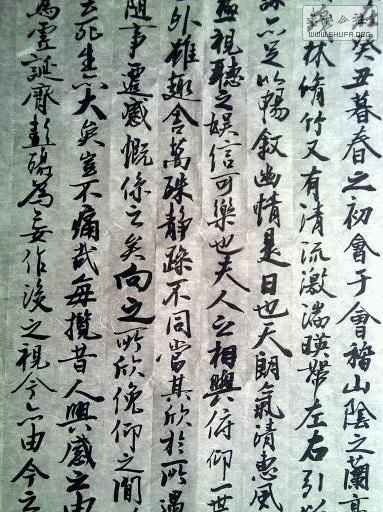 癸丑暮春之初會于會稽山陰之蘭亭
林脩竹又有清流激湍暎帶左右引以
詠亦足以暢叙幽情是日也天朗氣清惠風
極視聽之娛信可樂也夫人之相與俯仰一世
外雖趣舍萬殊静躁不同當其欣於所遇
隨事遷感慨係之矣向之所欣俛仰之間
云死生亦大矣豈不痛哉每攬昔人興感之由
為虛誕齊彭殤為妄作後之視今亦由今之
WWW.SHUFA.ORG